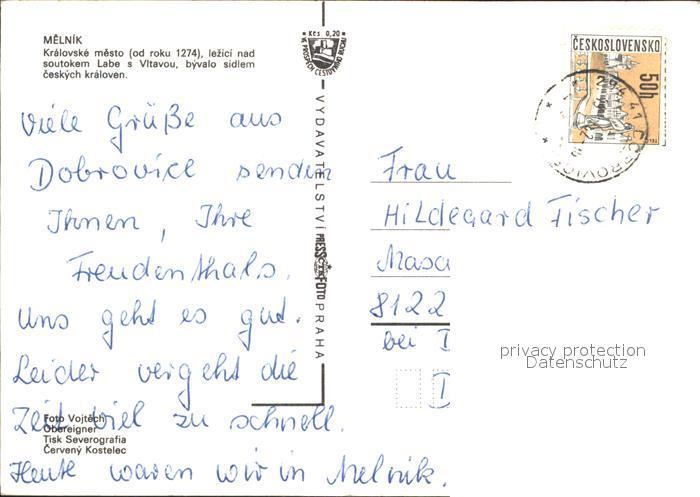 MĚLNÍK
Královské město (od roku 1274), ležící nad
soutokem Labe s Vltavou, bývalo sídlem
českých královen.
Kčs 0,20
VE PROSPĚCH CESTOVNÍHO RUCHU
ČESKOSLOVENSKO
50h
Viele Grüße aus
Dobrovice senden
Ihnen, Ihre
Freudenthals.
Uns geht es gut.
Leider vergeht die
Zeit viel zu schnell.
Heute waren wir in Melnik.
Foto Vojtěch
Obereigner
Tisk Severografia
Červený Kostelec
VYDAVATELSTVÍ PRESSFOTO PRAHA
Frau
Hildegard Fischer
8122
bei
privacy protection
Datenschutz